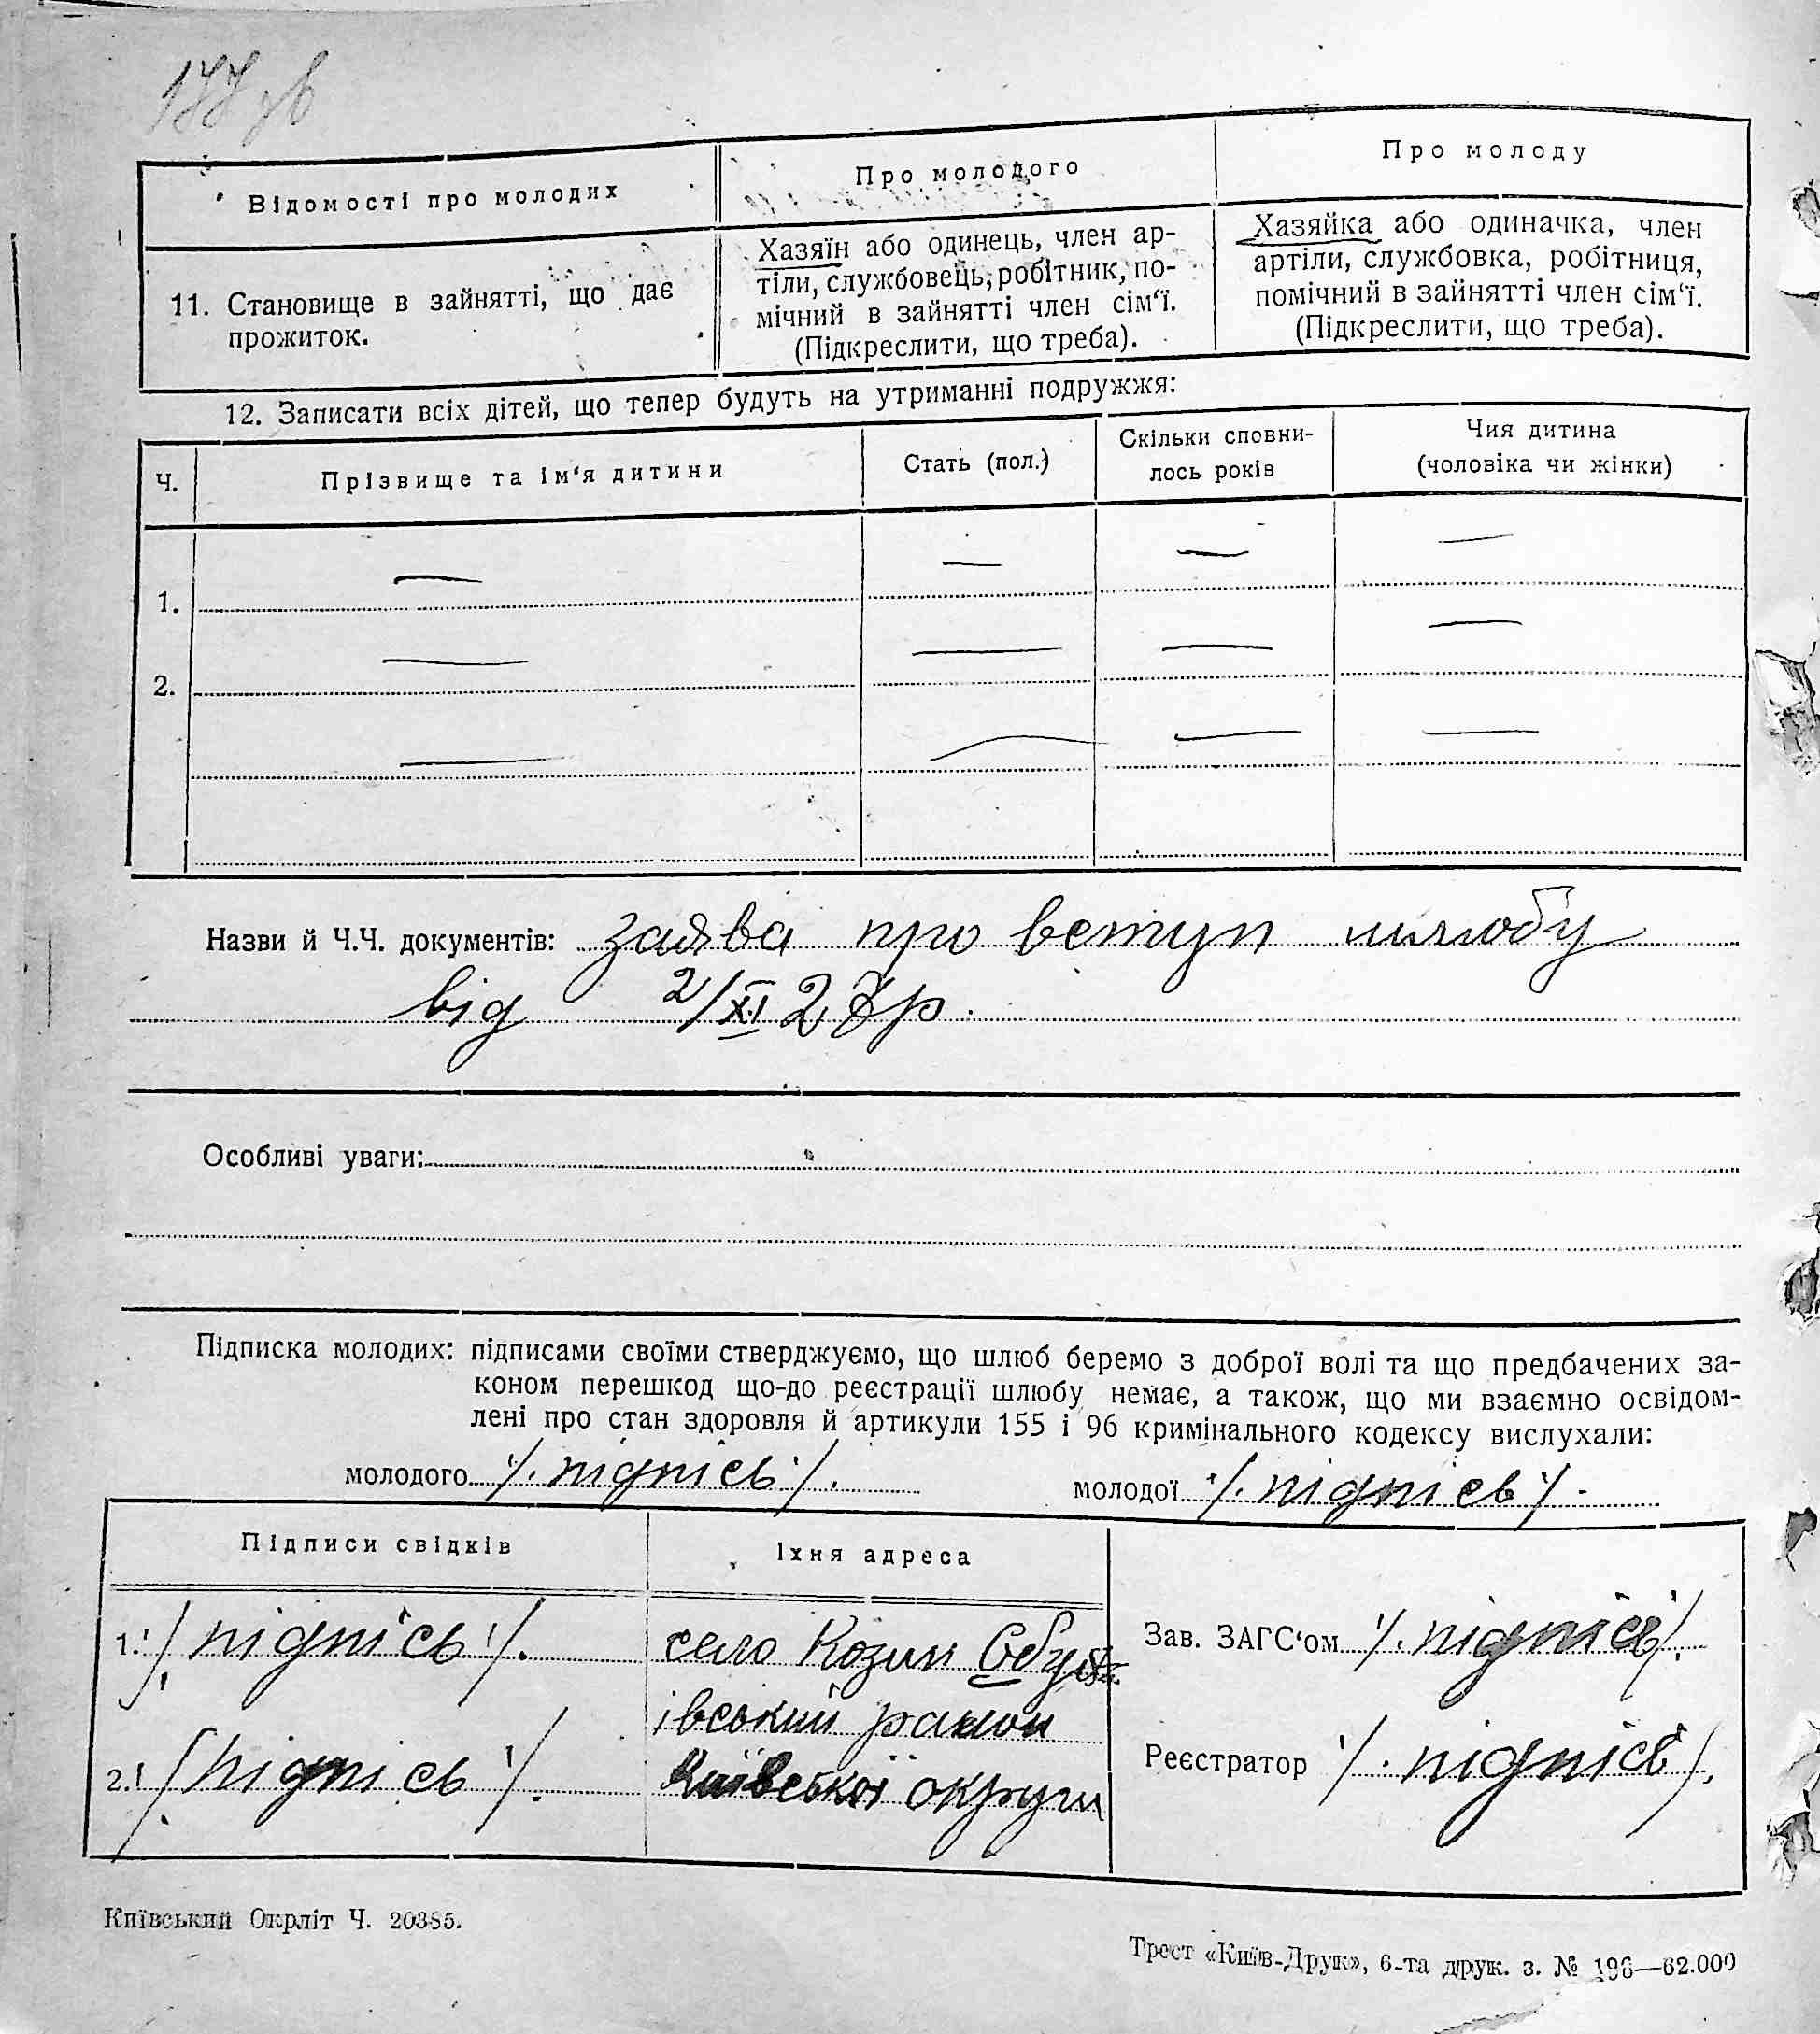 177 зв
Відомості про молодих
Про молодого
Про молоду
11. Становище в зайнятті, що дає
прожиток.
Хазяїн або одинець, член ар-
тіли, службовець, робітник, по-
мічний в зайнятті член сім'ї.
(Підкреслити, що треба).
Хазяйка або одиначка, член
артіли, службовка, робітниця,
помічний в зайнятті член сім'ї.
(Підкреслити, що треба).
12. Записати всіх дітей, що тепер будуть на утриманні подружжя:
Ч.
Прізвище та ім'я дитини
Стать (пол.)
Скільки сповни-
лось років
Чия дитина
(чоловіка чи жінки)
1. — — — —
2. — — — —
— — — —
Назви й Ч.Ч. документів: заява про вступ шлюбу
від 2/XI 27р.
Особливі уваги:
Підписка молодих: підписами своїми стверджуємо, що шлюб беремо з доброї волі та що предбачених за-
коном перешкод що-до реєстрації шлюбу немає, а також, що ми взаємно освідом-
лені про стан здоровля й артикули 155 і 96 кримінального кодексу вислухали:
молодого /. підпісь /.
молодої /. підпісь /.
Підписи свідків
Їхня адреса
1. /. підпісь /.
село Козин Обух-
івський район
2. /. підпісь /.
Київської округи
Зав. ЗАГС'ом /. підпісь /.
Реєстратор /. підпісь /.
Київський Окрліт Ч. 20385.
Трест «Київ-Друк», 6-та друк. з. № 196—62.000